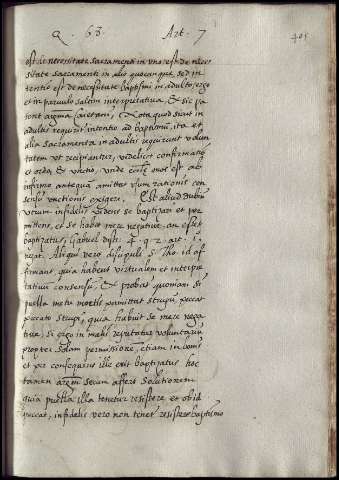 Q. 63. Art. 7 405
est de necessitate sacramenti in uno est de neces
sitate sacramenti in alio quocunque, sed in
tentio est de necesitate baptismi in adulto, ergo
et in parvulo saltem interpretativa, et sic pa
tent argum. Caietani, Nota quod sicut in
adultis requirit. intentio ad baptismū, ita et
alia sacramenta in adultis requirunt volun
tatem ut recipiantur, videlicet confirmatio
et ordo, et unctio, unde mos est ab
infirmo antequā amittat usum rationis con
sensū unctionis exigere, Est aliud dubiū
utrum infidelis videns se baptizari et per
mittens, et se habet mere negative, an esset
baptizatus, Gabriel dist. 4. q. 2. art. 1.
negat. Aliqui vero discipuli S. Tho. id af
firmant, quia habent virtualem et interpre
tativū consensū, et probat quoniam si
puella metu mortis permittat strupū, peccat
peccato strupi, quia habuit se mere nega
tiva, si ergo in malis reputatur voluntariū
propter solam permissionē, etiam in bonis
et per consequens ille erit baptizatus hoc
tamen argm. secum affert solutionem
quia puella illa tenetur resistere et ob id
peccat, infidelis vero non tenet. resistere baptismo